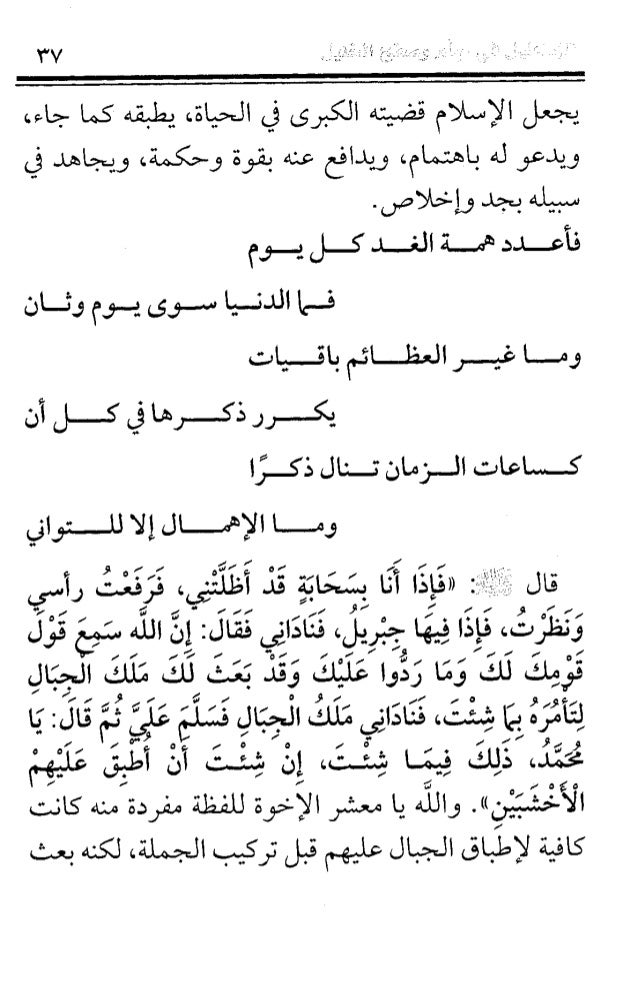 ٣٧
يجعل الإسلام قضيته الكبرى في الحياة، يطبقه كما جاء،
ويدعو له باهتمام، ويدافع عنه بقوة وحكمة، ويجاهد في
سبيله بجد وإخلاص.
فأعدد همة الغد كل يوم
فما الدنيا سوى يوم وثان
وما غير العظائم باقيات
يكرر ذكرها في كل أن
كساعات الزمان تنال ذكرًا
وما الإهمال إلا للتواني
قال ﷺ: «فَإِذَا أَنَا بِسَحَابَةٍ قَدْ أَظَلَّتْنِي، فَرَفَعْتُ رأسي
وَنَظَرْتُ، فَإِذَا فِيهَا جِبْرِيلُ، فَنَادَانِي فَقَالَ: إِنَّ اللَّه سَمِعَ قَوْلَ
قَوْمِكَ لَكَ وَمَا رَدُّوا عَلَيْكَ وَقَدْ بَعَثَ لَكَ مَلَكَ الْجِبَالِ
لِتَأْمُرَهُ بِمَا شِئْتَ، فَنَادَانِي مَلَكُ الْجِبَالِ فَسَلَّمَ عَلَيَّ ثُمَّ قَالَ: يَا
مُحَمَّدُ، ذَلِكَ فِيمَا شِئْتَ، إِنْ شِئْتَ أَنْ أُطْبِقَ عَلَيْهِمْ
الْأَخْشَبَيْنِ». واللَّه يا معشر الإخوة للفظة مفردة منه كانت
كافية لإطباق الجبال عليهم قبل تركيب الجملة، لكنه بعث